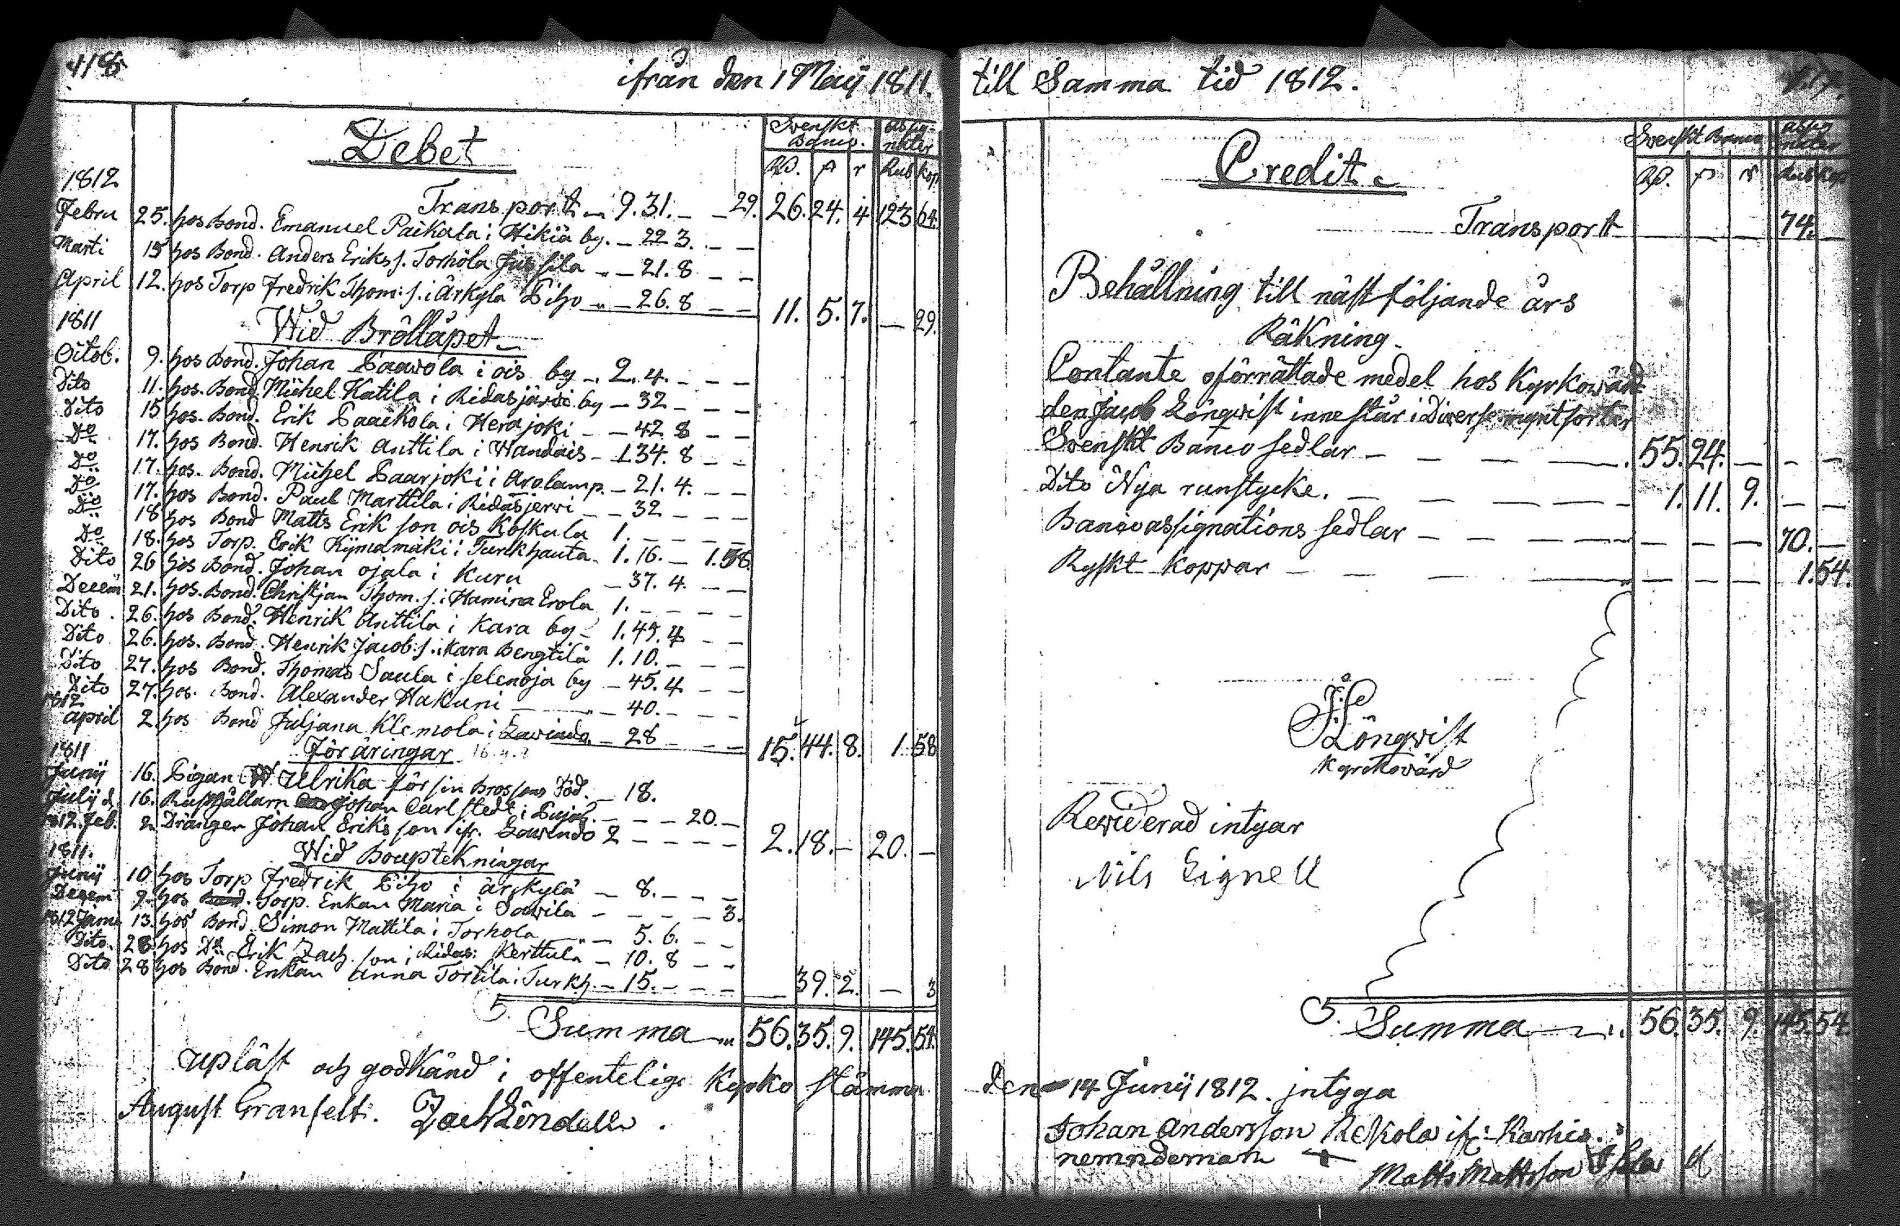 418
ifrån den 1 Maij 1811.
Debet
Svenskt Banco. Assignater
Rd. β r Rub kop
1812
Transport - 9.31. - - 29. 26. 24. 4 123 64
Febru 25. hos Bond. Emanuel Paikala i Hikiä by. - 22 3. - -
Marti 15 hos Bond. Anders Eriks s. Torhola Jussila - - 21. 8 - -
April 12. hos Torp Fredrik Thom: s. i Ärkylä Piho - - 26. 8 - - 11. 5. 7. - 29.
1811 Wid Brölläpet
Octob. 9. hos Bond. Johan Paavola i ois by - 2. 4. - - -
Dito 11. hos. Bond. Michel Katila i Ridasjärvi by - 32 - - -
Dito 15 hos. Bond. Erik Paaickola i Herajoki - - 42 8 - -
Do 17. hos Bond. Henrik Anttila i Wandais - 1.34. 8 - -
Do 17. hos. Bond. Michel Saarjoki i Arolamp. - 21. 4. - -
Do 17. hos Bond. Paul Marttila i Ridasjervi - - 32 - - -
Do 18 hos Bond Matts Erik son ois Koskala 1. - - - -
Do 18. hos Torp. Erik Kymämäki i Turkhauta - 1. 16. - 1.58
Dito 26 hos Bond. Johan Ojala i Kuru - 37. 4 - -
Decem 21. hos. Bond. Christjan Thom. s. i Hamina Erola 1. - - - -
Dito. 26. hos Bond. Henrik Anttila i Kara by - 1.45. 4 - -
Dito 26. hos. Bond. Henrik Jacob: s. i Kara Bengtilä 1. 10. - - -
Dito 27. hos Bond. Thomas Saula i selenoja by - 45. 4 - -
Dito 27. hos. Bond. Alexander Hakuni - 40. - - -
1812 april 2. hos Bond Juljana Klemola i - 28 - - - 15. 44. 8. 1 58
1811 För äringar
Junij 16. Pigan Ulrika för sin Brossons Död. - 18.
Julij d. 16. Rusthållarn Johan Carlstedt i - - - 20. -
1812. Feb. 2 Drängen Johan Eriksson 2 - - - - 2. 18. - 20. -
1811. Wid Bouptekningar
Junij 10 hos Torp Fredrik Piho i ärkylä - 8. - - -
Decem 9. hos Torp. Enkan Maria i Sawila - - - - 3.
1812 Janu 13. hos Bond. Simon Mattila i Torhola - - 5. 6. - -
Dito. 28 hos Do Erik Zach. son i Ridas: Kerttula - 10. 8 - -
Dito 28 hos Bond. Enkan Anna Torttila i Turkh. - 15. - - - - 39. 2. - 3
Summa 56. 35. 9. 145. 54.
upläst och godkänd i offentelige Kyrko stämma
August Granfelt. Zach Lindell.
till Samma tid 1812.
Credit
Svenskt Banco Assignater
Rd. β r Rub Kop
Transport - - - 74. -
Behållning till näst följande års
Räkning
Contante oförrättade medel hos Kyrkowärd
den Jacob Lönqwist innestår i Diverse myntsorter
Svenskt Banco sedlar - - - - - 55. 24. - - -
Dito Nya runstycke. - - - - - 1. 11. 9. - -
Bancoassignations sedlar - - - - - - - - 70. -
Ryskt koppar - - - - - - 1.54.
Lönqwist
Kyrkowärd
Reviderad intygar
Nils Lignell
Summa 56. 35. 9 145. 54.
den 14 Junij 1812. intyga
Johan Andersson Rekola Karhis
nemndeman
Matts Mattsson